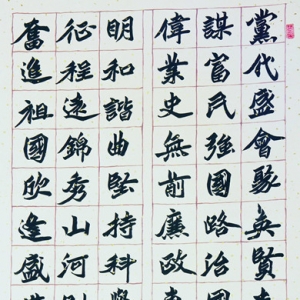 黨代盛會聚英賢
謀富民強國路治國
偉業史無前廉政
明和諧曲堅持科學
征程遠錦秀山河
奮進祖國欣逢盛